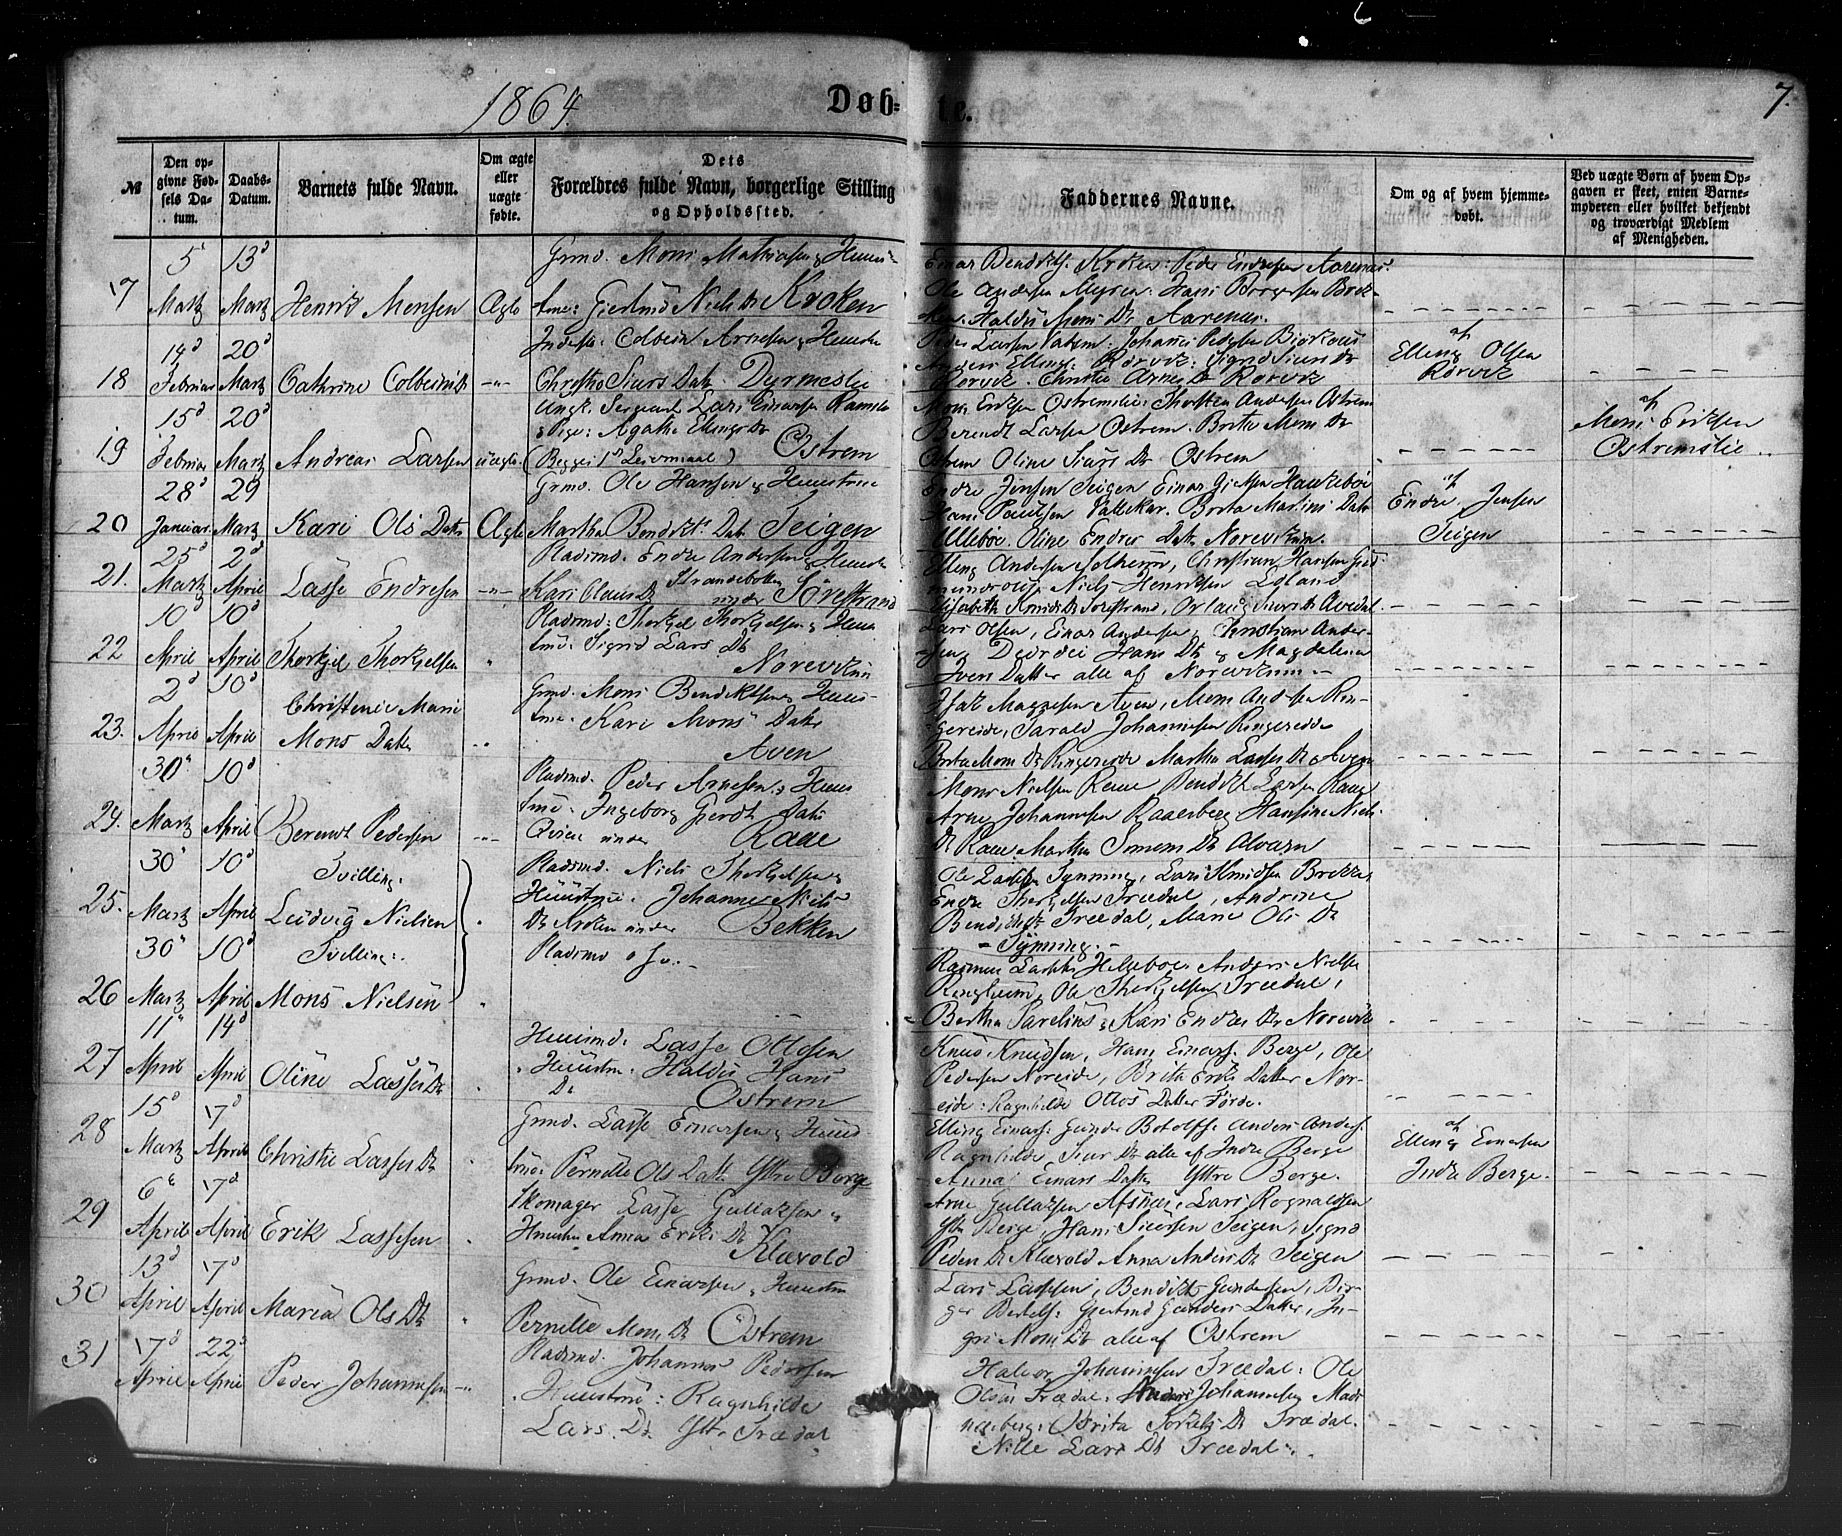 1864.
Døb=
te.
7.
№
Den opgivne Fødsels Datum.
Daabs-Datum.
Barnets fulde Navn.
Om ægte eller uægte fødte.
Dets Forældres fulde Navn, borgerlige Stilling og Opholdssted.
Faddernes Navne.
Om og af hvem hjemmedøbt.
Ved uægte Børn af hvem Opgaven er skeet, enten Barnemoderen eller hvilket bekjendt og troværdigt Medlem af Menigheden.
17
5 Martz
13d Martz
Henrik Monsen
Ægte
Grmd. Mons Mathiasen & Huus-
true: Giertrud Niels Dr Kroken
Einar Bendiks. Kroken: Peder Endresen Aarenæs:
Ole Andersen Myren: Hans Børgersen Brek-
ken. Haldis Mons Dr Aarenæs.
18
14d Februar
20d Martz
Cathrine Colbeins Dr
-"-
Inderst. Colbein Arnesen & Huustr
Christie Siurs Datr Dyrneslie
Peder Larsen Vatsm: Johannes Peders Biørkaas
Anders Ellings. Rørvik: Sigrid Siurs Dr
Rørvik. Christie Arnes Dr Rørvik
af
Elling Olsen
Rørvik
19
15d Februar
20d Martz
Andreas Larsen
uægte
Ungk. Sergeant Lars Einarsen Ramslo
& Pige: Agathe Ellings Dr
(Begges 1ste Leiermaal) Ostrem
Mons Eriksen Ostremslie: Thorsten Andersen Ostrem
Berendt Larsen Ostrem. Brita Mons Dr
Ostrem Oline Siurs Dr Ostrem
af
Mons Eriksen
Ostremslie
20
28d Januar
29 Martz
Kari Ols Datr
Ægte
Grmd. Ole Hansen & Huustrue
Martha Bendiks Datr Teigen
Endre Jensen Teigen Einar Haukebøe
Hans Poulsen Brita Datr
Ullebøe. Oline Endres Datr Norevikun.
af
Endre Jensen
Teigen
21.
25d Martz
2d April
Lasse Endresen
-"-
Pladsmd. Endre Andersen & Huustr
Kari Claus Dr Strandebotten
under Sørestrand
Elling Andersen Solheim, Christian Hansen
Niels Henriksen Edland
Elisabeth Knuds Dr Sørestrand, Siurs Dr Avedal.
22
10d April
10d April
Thorkjel Thorkjelsen
"
Pladsmd: Thorkjel Thorkjelsen & Huus
true: Sigrid Lars Dr
Norevikun
Lars Olsen, Einar Andersen, Christian Ander-
sen, Hans Dr & Magdalena
Iven Datter alle af Norevikun
23.
2d April
10d April
Christense Marie
Mons Datr
Grmd. Mons Bendiktsen & Huus-
true. Kari Mons Datr
Aven
Magnesen Aven, Mons Andersen Rin-
gereide, Harald Johannesen Ringereide
Brita Mons Dr Ringereide Martha Lasses Dr Aven
24.
30" Martz
10d April
Berendt Pedersen
-"-
Pladsmd. Peder Arnesen & Huus
true. Ingeborg Gierdt Datr
under Raae
Mons Nielsen Raae Bendik Larsen Raae
Arne Johannesen Raaesberg Hansine Niels
Dr Raae Martha Simens Dr Alværn
25.
30" Martz
10d April
Tvilling.
Ludvig Nielsen
"
Pladsmd. Niels Thorkjelsen &
Huustrue. Johanne Niels
Dr Kroken under Bekken
Ole Lassesen Tynning, Lars Knudsen Brekke,
Endre Thorkjelsen Trædal, Andrine
Bendiks Dr Trædal, Marie Ols Dr
- Tynning. -
26
30" Martz
10d April
Tvilling:
Mons Nielsen
"
Pladsmd & s. v. -
Rasmus Lassesen Hellebøe Anders Nielsen
Ringheim, Ole Thorkjelsen Trædal,
Bertha Karelius & Kari Endres Dr Norevik
27
11" April
14d April
Oline Lasses Dr
"
Huusmd. Lasse Ottosen
& Huustrue. Haldis Hans
Dr Ostrem
Knud Knudsen, Hans Einars. Berge, Ole
Pedersen Noreide, Brita Eriks Datter Nor-
eide: Ragnhilde Ottos Datter Førde.
28
15d Martz
17d April
Christie Lasses Dr
"
Grmd. Lasse Einarsen & Huus
true Pernille Ols Datr Yttre Berge
Elling Einars. Gunder Botolfs. Anders Anders.
Ragnhilde Siur Dr alle af Indre Berge
Anna Einars Datter Yttre Berge.
af
Elling Einarsen
Indre Berge.
29
6" April
17d April
Erik Lassesen
"
Skomager Lasse Gullaksen &
Huustrue Anna Eriks Dr
Klævold
Arne Gullaksen Afsnæs, Lars Rognaldsen
Yttre Berge, Hans Siursen Teigen, Sigrid
Peders Dr Klævold Anna Anders Dr Teigen
30
13d April
17d April
Maria Ols Dr
"
Grmd. Ole Einarsen & Huustrue
Pernille Mons Dr Ostrem
Lars Lassesen, Bendikt Gundersen, Bir-
ger Bertels. Giertrud Gunders Datter, In-
gri Mons Dr alle af Ostrem
31
17d April
22d April
Peder Johannesen
-"-
Pladsmd. Johannes Pedersen
& Huustrue: Ragnhilde
Lars Dr. Yttre Trædal
Halvor Johannesen Trædal: Ole
Olsen Trædal. Anders Johannesen Mads
Brita Torkels Dr Trædal.
Nille Lars Dr Trædal.